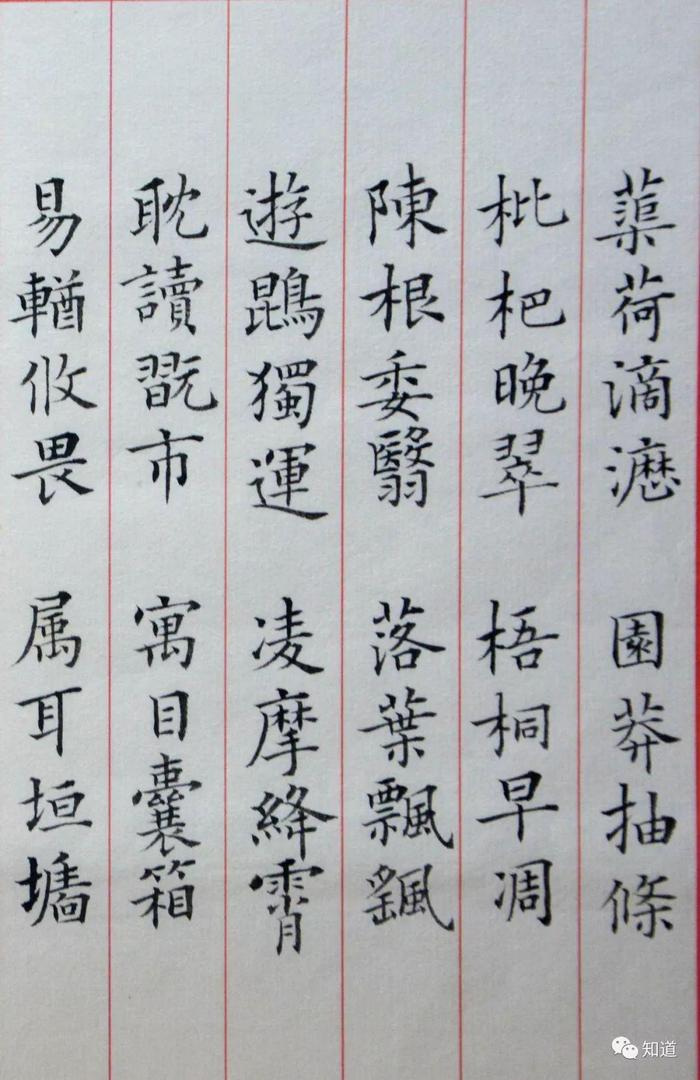 蕖荷滴瀝 園莽抽條
枇杷晚翠 梧桐早凋
陳根委翳 落葉飄颻
遊鵾獨運 凌摩絳霄
耽讀翫市 寓目囊箱
易輶攸畏 属耳垣墻
知道